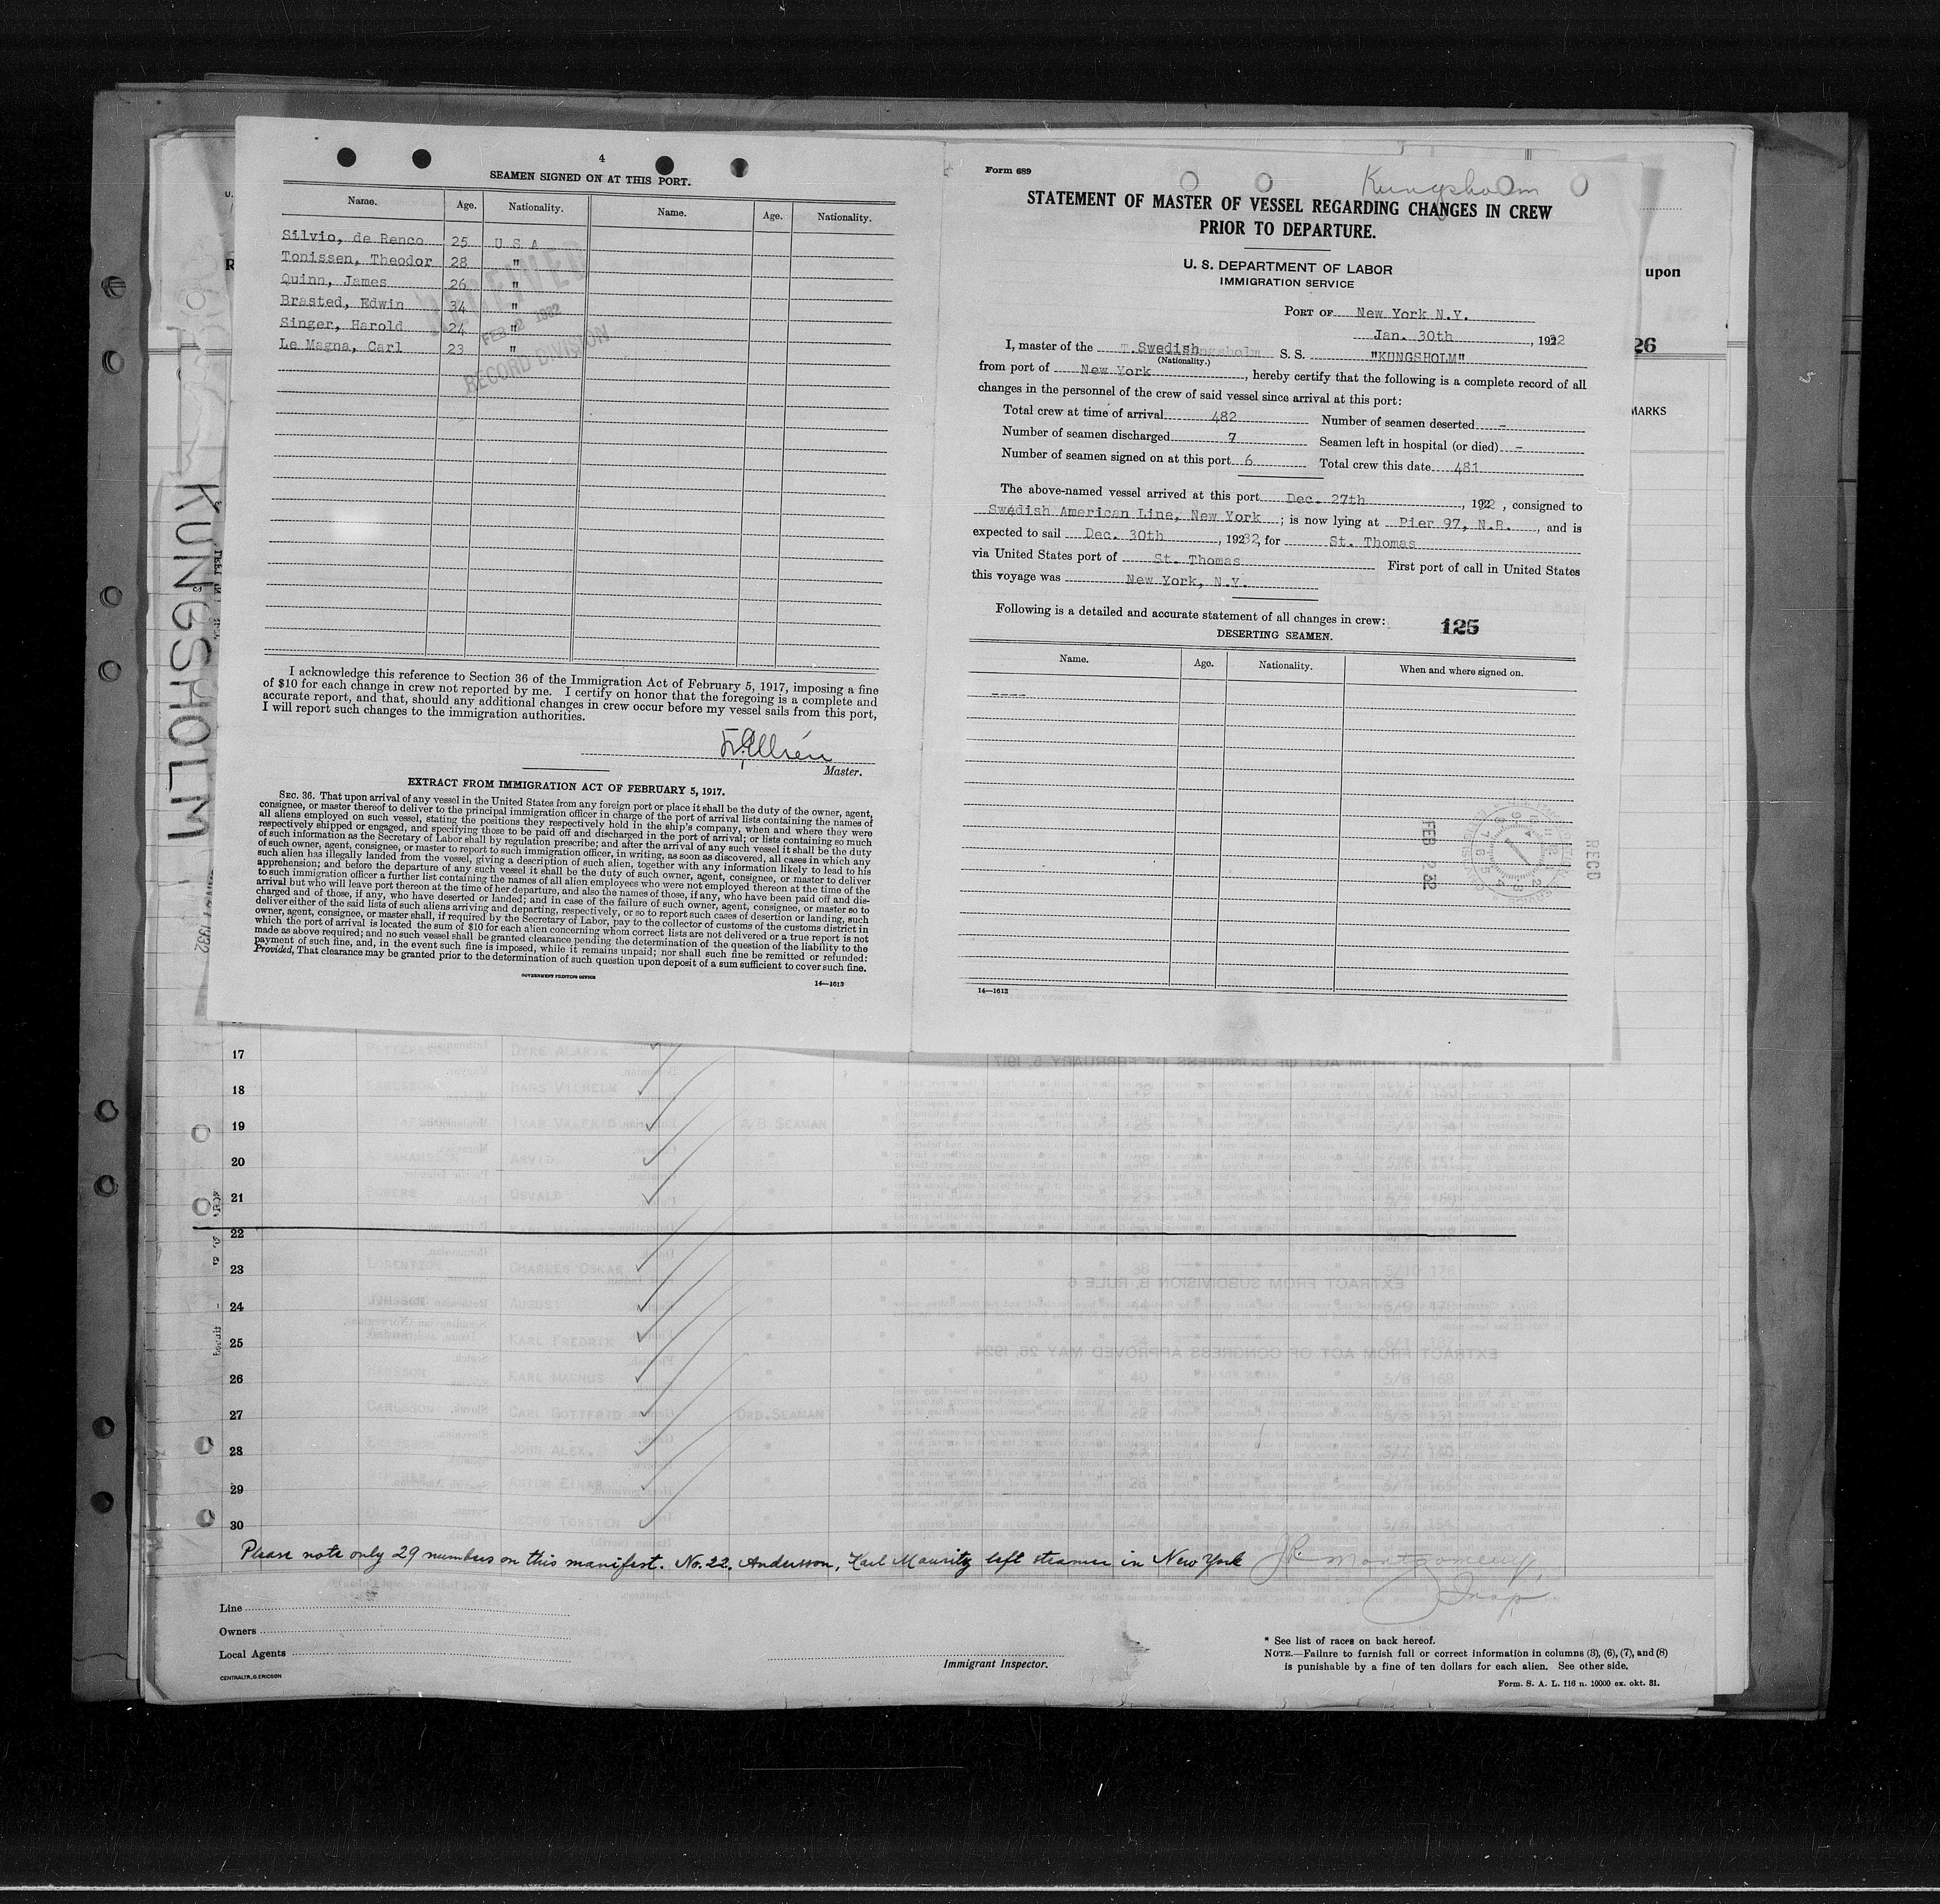 4
SEAMEN SIGNED ON AT THIS PORT.
Name. Age. Nationality. Name. Age. Nationality.
Silvio, de Renco 25 U S A
Tonissen, Theodor 28 "
Quinn, James 26 "
Brasted, Edwin 34 "
Singer, Harold 24 "
Le Magna, Carl 23 "
RECEIVED
FEB 2 1932
RECORD DIVISION
I acknowledge this reference to Section 36 of the Immigration Act of February 5, 1917, imposing a fine
of $10 for each change in crew not reported by me. I certify on honor that the foregoing is a complete and
accurate report, and that, should any additional changes in crew occur before my vessel sails from this port,
I will report such changes to the immigration authorities.
Master.
EXTRACT FROM IMMIGRATION ACT OF FEBRUARY 5, 1917.
SEC. 36. That upon arrival of any vessel in the United States from any foreign port or place it shall be the duty of the owner, agent,
consignee, or master thereof to deliver to the principal immigration officer in charge of the port of arrival lists containing the names of
all aliens employed on such vessel, stating the positions they respectively hold in the ship's company, when and where they were
respectively shipped or engaged, and specifying those to be paid off and discharged in the port of arrival; or lists containing so much
of such information as the Secretary of Labor shall by regulation prescribe; and after the arrival of any such vessel it shall be the duty
of such owner, agent, consignee, or master to report to such immigration officer, in writing, as soon as discovered, all cases in which any
such alien has illegally landed from the vessel, giving a description of such alien, together with any information likely to lead to his
apprehension; and before the departure of any such vessel it shall be the duty of such owner, agent, consignee, or master to deliver
to such immigration officer a further list containing the names of all alien employees who were not employed thereon at the time of the
arrival but who will leave port thereon at the time of her departure, and also the names of those, if any, who have been paid off and dis-
charged and of those, if any, who have deserted or landed; and in case of the failure of such owner, agent, consignee, or master so to
deliver either of the said lists of such aliens arriving and departing, respectively, or so to report such cases of desertion or landing, such
owner, agent, consignee, or master shall, if required by the Secretary of Labor, pay to the collector of customs of the customs district in
which the port of arrival is located the sum of $10 for each alien concerning whom correct lists are not delivered or a true report is not
made as above required; and no such vessel shall be granted clearance pending the determination of the question of the liability to the
payment of such fine, and, in the event such fine is imposed, while it remains unpaid; nor shall such fine be remitted or refunded:
Provided, That clearance may be granted prior to the determination of such question upon deposit of a sum sufficient to cover such fine.
GOVERNMENT PRINTING OFFICE
14—1613
Form 689
Kungsholm
STATEMENT OF MASTER OF VESSEL REGARDING CHANGES IN CREW
PRIOR TO DEPARTURE.
U. S. DEPARTMENT OF LABOR
IMMIGRATION SERVICE
PORT OF New York N.Y.
Jan. 30th, 1932
I, master of the Swedish S. S. "KUNGSHOLM"
(Nationality.)
from port of New York, hereby certify that the following is a complete record of all
changes in the personnel of the crew of said vessel since arrival at this port:
Total crew at time of arrival 482 Number of seamen deserted -
Number of seamen discharged 7 Seamen left in hospital (or died) -
Number of seamen signed on at this port 6 Total crew this date 481
The above-named vessel arrived at this port Dec. 27th, 1932, consigned to
Swedish American Line, New York; is now lying at Pier 97, N.R., and is
expected to sail Dec. 30th, 1932, for St. Thomas
via United States port of St. Thomas First port of call in United States
this voyage was New York, N.Y.
Following is a detailed and accurate statement of all changes in crew: 125
DESERTING SEAMEN.
Name. Age. Nationality. When and where signed on.
----
FEB 2 32
RECD
14—1613
upon
26
MARKS
KUNGSHOLM
1932
17
18 KARLSSON LARS VILHELM
19 A/B SEAMAN
20 ARVID
21 OSVALD
22
23 CHARLES OSKAR
24 AUGUST
25 KARL FREDRIK
26 KARL MAGNUS 40 5/8 168
27 CARLSSON CARL GOTTFRID ORD.SEAMAN 22
28 JOHN ALEX.
29
30 TORSTEN
Please note only 29 numbers on this manifest. No. 22. Andersson, Karl Mauritz left steamer in New York JR Montgomery,
Insp
Line
Owners
Local Agents
CENTRALTR. G. ERICSON
Immigrant Inspector.
* See list of races on back hereof.
NOTE.—Failure to furnish full or correct information in columns (3), (6), (7), and (8)
is punishable by a fine of ten dollars for each alien. See other side.
Form. S. A. L. 116 n. 10000 ex. okt. 31.